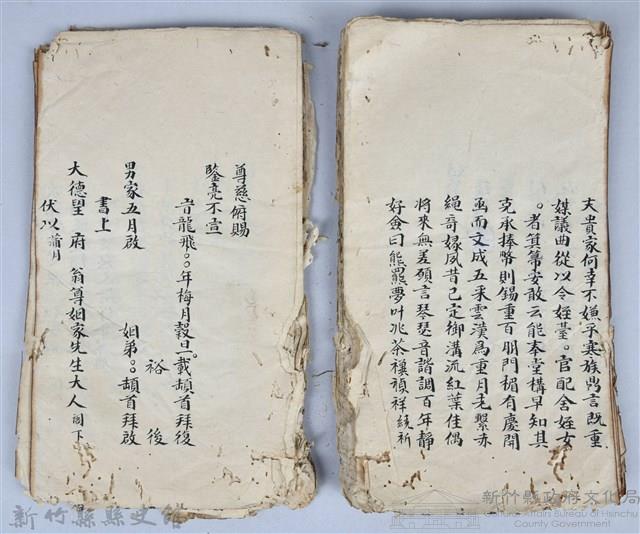 大貴家何幸不嫌乎寒族鳥言既重
媒議曲從以令姪臺。官配舍姪女
。者箕箒安敢云能奉堂構早知其
克承捧幣則錫重百朋門楣有慶開
函而文成五采雲漢為重月老繫赤
繩奇緣夙昔已定御溝流紅葉佳偶
將來無差預言琴瑟音諧調百年靜
好僉曰熊羆夢叶兆茶禳禎祥統祈
尊慈俯賜
鑒亮不宣
旹龍飛。。年梅月穀旦。載頓首拜後
裕後
男家五月啟
姻弟。。頓首拜啟
書上
大德望 府 翁尊姻家先生大人 閣下
伏以蒲月
新竹縣縣史館
新竹縣政府文化局
Cultural Affairs Bureau of Hsinchu
County Government